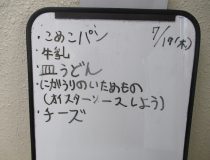 ・こめこパン
7/19(木)
・牛乳
・皿うどん
・にがうりのいためもの
(オイスターソースしょう)
・チーズ